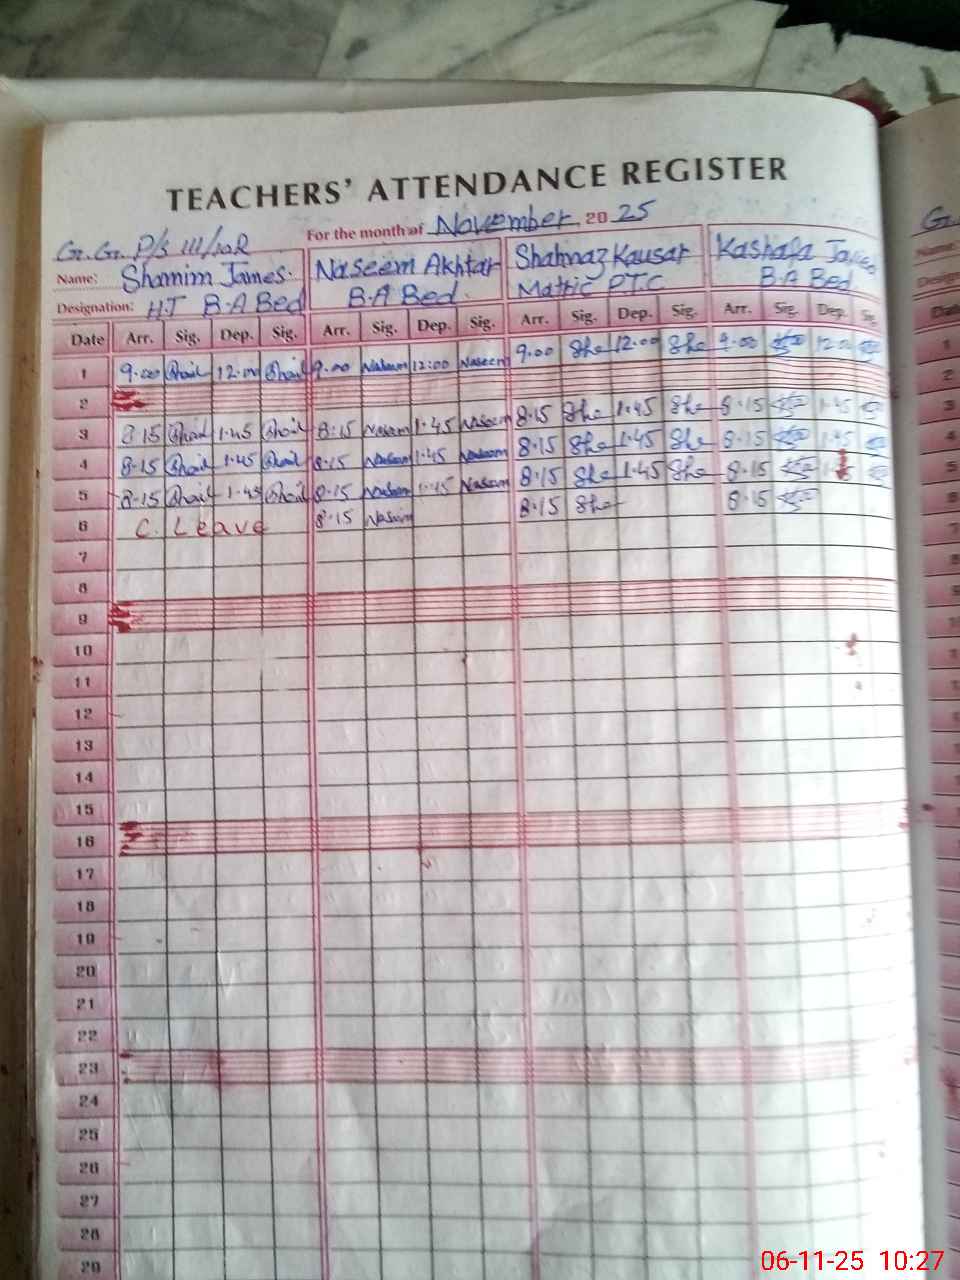 TEACHERS' ATTENDANCE REGISTER
For the month of November 2025
G.G. P/S 111/10R
Name: Shamim James. Naseem Akhtar Shahnaz Kausar Kashafa Javed
Designation: HT B.A Bed B.A Bed. Matric P.T.C B.A Bed.
Date Arr. Sig. Dep. Sig. Arr. Sig. Dep. Sig. Arr. Sig. Dep. Sig. Arr. Sig. Dep. Sig.
1 9.00 12.00 9.00 Naseem 12:00 Naseem 9.00 She 12.00 She 9.00 12.00
2
3 8.15 1.45 8:15 Naseem 1.45 Naseem 8.15 She 1.45 She 8.15 1.45
4 8.15 1.45 8.15 Naseem 1.45 Naseem 8.15 She 1.45 She 8.15 1.45
5 8.15 1.45 8.15 Naseem 1.45 Naseem 8.15 She 1.45 She 8.15
6 C. Leave 8.15 Naseem 8.15 She 8.15
7
8
9
10
11
12
13
14
15
16
17
18
19
20
21
22
23
24
25
26
27
28
29
06-11-25 10:27